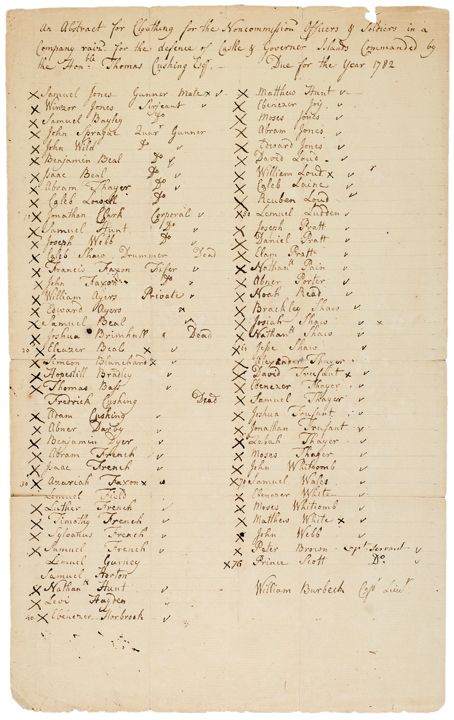 An Abstract for Cloathing for the Noncommission Officers & Soldiers in a
Company rais'd for the defence of Castle & Governer Islands Commanded by
the Hon.ble Thomas Cushing Esq.r Due for the Year 1782
X Samuel Jones Gunner Mate x v
X Winzor Jones Serjeant v
X Samuel Bayley Do
X John Sprague Quar.r Gunner
X John Wild Do v
X Benjamin Beal Do v
X Isaac Beal Do v
X Abram Thayer Do v
X Caleb Lowell Do
10 X Jonathan Clark Corporal v
X Samuel Hunt Do v
X Joseph Webb Do v
X Caleb Shaw Drummer Dead
X Francis Faxon Fifer v
X John Faxon Do v
X William Ayers Private v
X Edward Ayers v
X Samuel Beal
X Joshua Brimhall Dead
20 X Eleazer Beals x v
X Simeon Blanchard x v
X Hopestill Bradley v
X Thomas Bass v
Fredrick Cushing Dead
X Adam Cushing v
X Abner Darby v
X Benjamin Dyer v
X Abram French v
X Isaac French v
30 X Azariah Faxon x
Lemuel Field
X Luther French v
X Timothy French v
X Sylvanus French v
X Samuel French v
Lemuel Gurney
Samuel Horton
X Nathan Hunt v
X Levi Hayden v
40 X Ebenezer Horbrook v
X Matthew Hunt v
X Ebenezer Joy v
X Moses Jones v
X Abram Jones v
X Edward Jones v
X David Loud v
X William Loud x v
X Caleb Laine v
X Reuben Loud v
50 X Lemuel Ludden v
X Joseph Pratt v
X Daniel Pratt v
X Elam Pratt v
X Nathan.l Pain v
X Abner Porter v
X Noah Read v
X Brackley Shaw v
X Josiah Shaw v x
X Nathan.l Shaw v
X Shaw v
X Alexander Thayer
X David Tousant x v
X Ebenezer Thayer v
X Samuel Thayer v
X Joshua Tousant v
X Jonathan Tousant v
X Labah Thayer v
X Moses Thayer v
X John Whitcomb v
X 70 Samuel Wales v
X Ebenezer White v
X Moses Whitcomb v
X Matthew White x v
X John Webb v
X Peter Brown Cpt Servant v
X 76 Prince Scott Do v
William Burbeck Cap.t Lieu.t